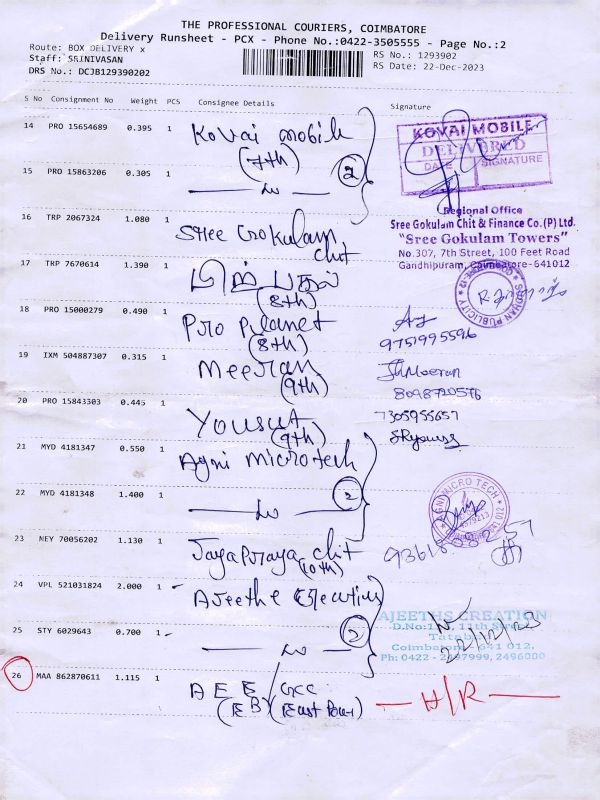 THE PROFESSIONAL COURIERS, COIMBATORE
Delivery Runsheet - PCX - Phone No.:0422-3505555 - Page No.:2
Route: BOX DELIVERY x
Staff: SRINIVASAN
DRS No.: DCJB129390202
RS No.: 1293902
RS Date: 22-Dec-2023
S No Consignment No Weight PCS Consignee Details Signature
14 PRO 15654689 0.395 1 Kovai mobile
(7th) 2
KOVAI MOBILE
DELIVERED
DATE SIGNATURE
15 PRO 15863206 0.305 1
16 TRP 2067324 1.080 1 Shree Gokulam
chit
Regional Office
Sree Gokulam Chit & Finance Co.(P) Ltd.
"Sree Gokulam Towers"
No.307, 7th Street, 100 Feet Road
Gandhipuram, Coimbatore-641012
17 TRP 7670614 1.390 1
(8th)
PUBLICITY
18 PRO 15000279 0.490 1 Pro Planet
(8th)
9751995596
19 IXM 504887307 0.315 1 Meeran
(9th)
8098720576
20 PRO 15843303 0.445 1 Yousuf
(9th)
7305955657
21 MYD 4181347 0.550 1 Agni Microtech
22 MYD 4181348 1.400 1
2
MICRO TECH
23 NEY 70056202 1.130 1 Jayapriya chit
(10th)
24 VPL 521031824 2.000 1 Ajeeths Creation
25 STY 6029643 0.700 1
2
AJEETHS CREATION
11th Street
Tatabad
Coimbatore - 641 012.
Ph: 0422 - 2497999, 2496000
22/12/23
26 MAA 862870611 1.115 1 A E E
(EB)
H/R